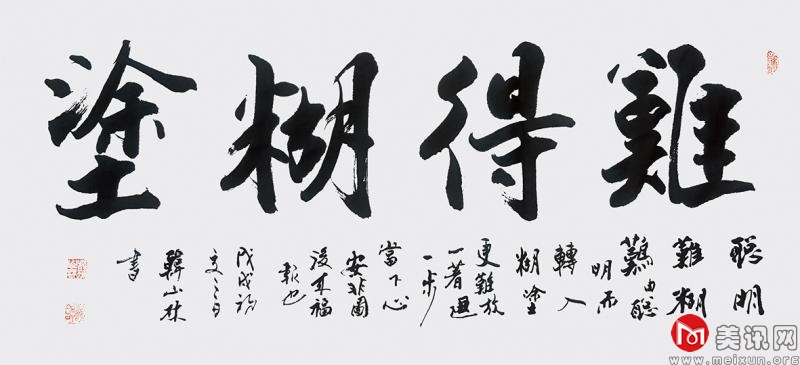 難得糊塗
聰明
難糊
難由聰
明而
轉入
糊塗
更難放
一著退
一步
當下心
安非圖
後來福
報也
戊戌
之日
韓山林
書
美讯网
www.meixun.org